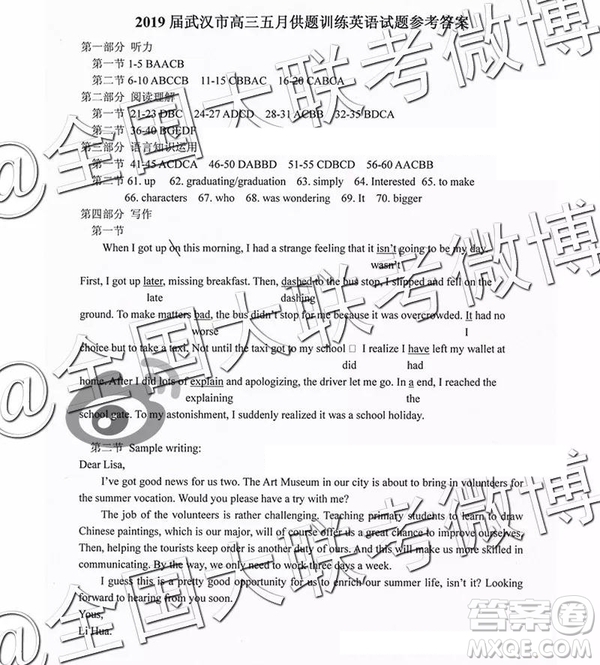 2019 届武汉市高三五月供题训练英语试题参考答案
第一部分 听力
第一节 1-5 BAACB
第二节 6-10 ABCCB 11-15 CBBAC 16-20 CABCA
第二部分 阅读理解
第一节 21-23 DBC 24-27 ADCD 28-31 ACBB 32-35 BDCA
第二节 36-40 BGEDF
第三部分 语言知识运用
第一节 41-45 ACDCA 46-50 DABBD 51-55 CDBCD 56-60 AACBB
第二节 61. up 62. graduating/graduation 63. simply 64. Interested 65. to make
66. characters 67. who 68. was wondering 69. It 70. bigger
第四部分 写作
第一节
When I got up on this morning, I had a strange feeling that it isn't going to be my day.
wasn't
First, I got up later, missing breakfast. Then, dashed to the bus stop, I slipped and fell on the
late dashing
ground. To make matters bad, the bus didn't stop for me because it was overcrowded. It had no
worse I
choice but to take a taxi. Not until the taxi got to my school I realize I have left my wallet at
did had
home. After I did lots of explain and apologizing, the driver let me go. In a end, I reached the
explaining the
school gate. To my astonishment, I suddenly realized it was a school holiday.
第二节 Sample writing:
Dear Lisa,
I've got good news for us two. The Art Museum in our city is about to bring in volunteers for
the summer vocation. Would you please have a try with me?
The job of the volunteers is rather challenging. Teaching primary students to learn to draw
Chinese paintings, which is our major, will of course offer us a great chance to improve ourselves.
Then, helping the tourists keep order is another duty of ours. And this will make us more skilled in
communicating. By the way, we only need to work three days a week.
I guess this is a pretty good opportunity for us to enrich our summer life, isn't it? Looking
forward to hearing from you soon.
Yous,
Li Hua.
@全国大联考微博
@全国大联考微博
@全国大联考微博
答案圈
MXQE.COM